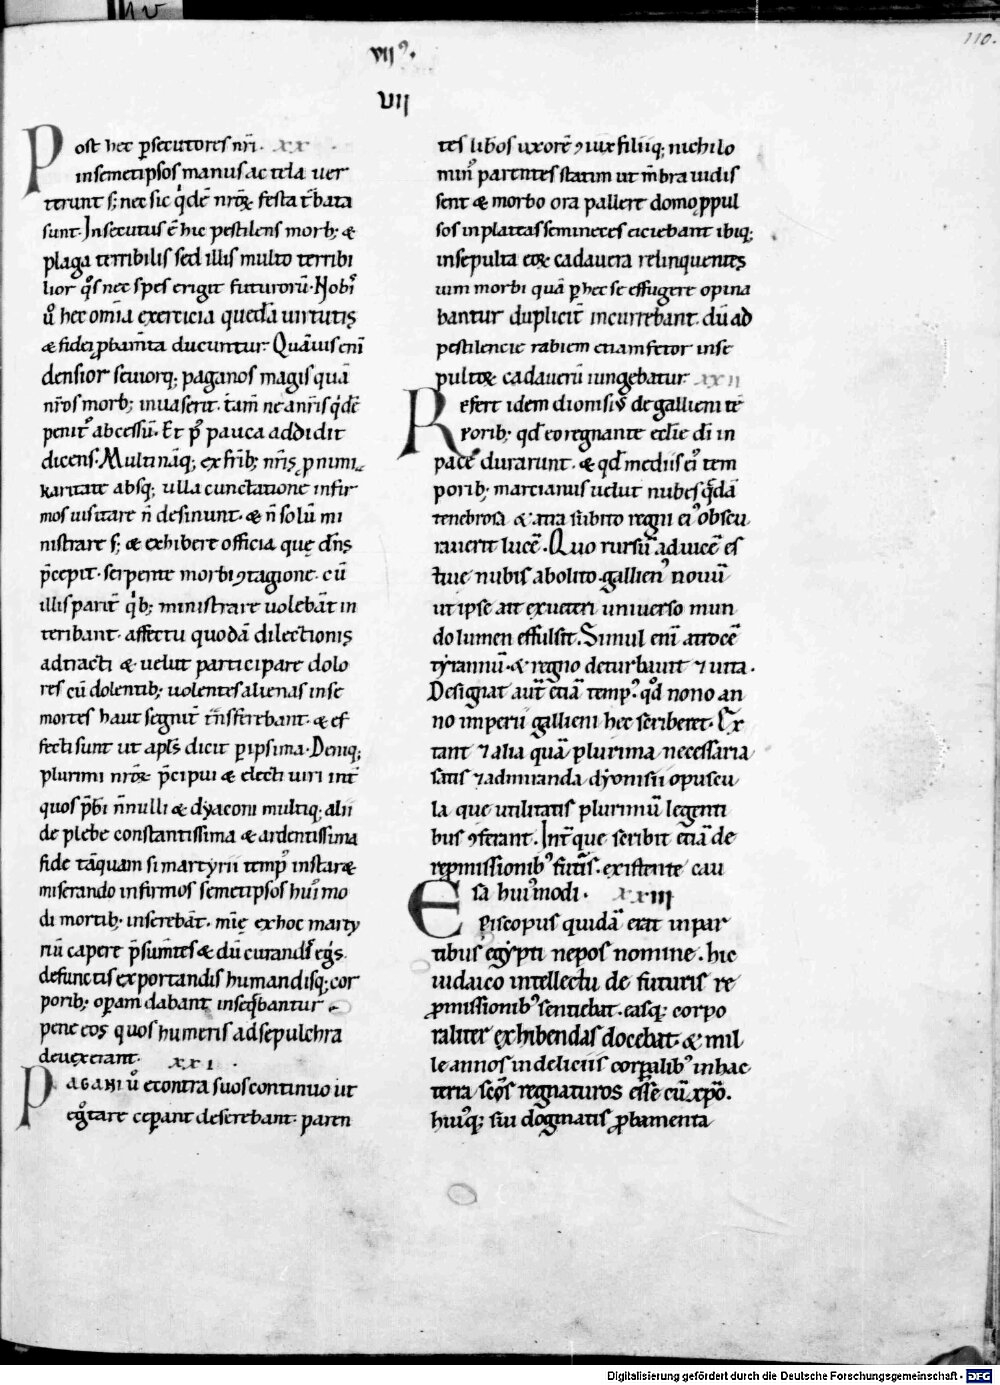 110.
vii⁹.
VII
Post hec ꝑsecutores nr̄i. xx
insemetipsos manus ac tela uer
terunt s; nec sic q'dē nr̄oꝝ festa t̄bata
sunt. Insecutus ē hic pestilens morb; &
plaga terribilis sed illis multo terribi
lior q°s nec spes erigit futurorū. Nobi'
ů hec om̄ia exercicia quedā uirtutis
& fidei ꝓbam̄ta ducuntur. Quāuis enī
densior seuiorq; paganos magis quā
nr̄os morb; inuaserit. tam̄ ne a nr̄is q'dē
penit' abcessū. Et p' pauca addidit
dicens. Multi nāq; ex fr̄ib; nr̄is ꝓ nimi
karitate absq; ulla cunctatione infir
mos uisitare n̄ desinunt. & n̄ solū mi
nistrare s; & exhibere officia que dn̄s
p̄cepit. serpente morbi ꝯtagione. cū
illis parit̄ q'b; ministrare uolebāt in
teribant. affectu quodā dilectionis
adtracti & uelut participare dolo
res cū dolentib; uolentes alienas in se
mortes haut segnit̄ t̄nsferebant. & ef
fecti sunt ut apl's dicit peripsima. Deniq;
plurimi nr̄oꝝ p̄cipui & electi uiri int̄
quos p̄bi n̄nulli & dyaconi multiq; alii
de plebe constantissima & ardentissima
fide tāquam si martyrii temp' instar&
miserando infirmos semetipsos hui' mo
di mortib; inserebāt. mi<e>ę ex hoc marty
riū capere p̄sum̄tes & dū curandis egris
defunctis exportandis humandisq; cor
porib; operam dabant insequebantur
pene eos quos humeris ad sepulchra
deuexerant. xxi
Pagani ů econtra suos continuo ut
egrotare ceperant deserebant. paren
tes lib̄os uxorē ꝯiux filiiq; nichilo
min' parentes statim ut mēbra uidis
sent & morbo ora pallere domo ꝓpul
sos in plateas semineces eiciebant ibiq;
insepulta eoꝝ cadauera relinquentes
uim morbi quā ꝑ hec se effugere opina
bantur duplicit̄ incurrebant. dū ad
pestilencie rabiem etiam fetor inse
pultoꝝ cadauerū iungebatur. xxii
Refert idem dionisi' de gallieni tē
porib; qd̄ eo regnante eccl̄ie dī in
pace durarunt. & qd̄ mediis ei' tem
porib; marcianus uelut nubes q̄dā
tenebrosa & atra subito regni ei' obscu
rauerit lucē. Quo rursū ad uicē es
tiue nubis abolito. gallien' nouū
ut ipse ait ex ueteri uniuerso mun
do lumen effulsit. Simul enī atrocē
tyrannū. & regno deturbauit ⁊ uita.
Designat aut̄ etiā temp'. qd̄ nono an
no imperii gallieni hec scriberet. Ex
tant ⁊ alia quā plurima necessaria
satis ⁊ admiranda dyonisii opuscu
la que utilitatis plurimū legenti
bus ꝯferant. Int̄ que scribit etiā de
repmissionib' futuris. existente cau
sa hui'modi. xxiii
Episcopus quidā erat in par
tibus egypti nepos nomine. hic
iudaico intellectu de futuris re
ꝓmissionib' sentiebat. easq; corpo
raliter exhibendas docebat. & mil
le annos in deliciis corꝑalib' in hac
terra sc̄os regnaturos esse cū xp̄o.
hui'q; sui dogmatis ꝓbamenta
Digitalisierung gefördert durch die Deutsche Forschungsgemeinschaft - DFG